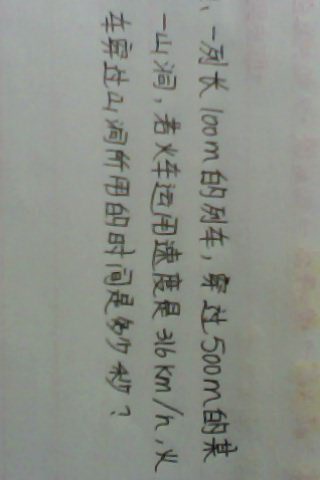 1、一列长100m的列车，穿过500m的某
一山洞，若火车运用速度是316km/h，火
车穿过山洞所用的时间是多少秒？